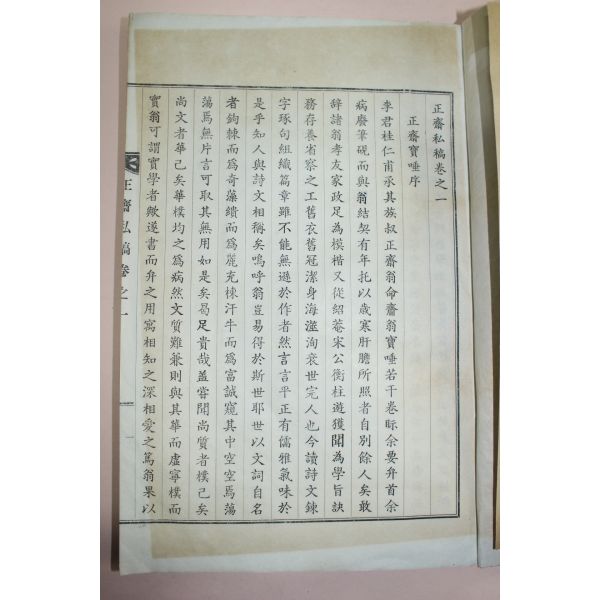 正齋私稿卷之一
正齋寶唾序
李君桂仁甫承其族叔正齋翁命齋翁寶唾若干卷眎余要弁首余
病廢筆硯而與翁結契有年托以歲寒肝膽所照者自別餘人矣敢
辭諸翁孝友家政足為模楷又從紹菴宋公衡柱遊獲聞為學旨訣
務存養省察之工舊衣舊冠潔身海滋洵衰世完人也今讀詩文鍊
字琢句組織篇章雖不能無遜於作者然言言平正有儒雅氣味於
是乎知人與詩文相稱矣嗚呼翁豈易得於斯世耶世以文詞自名
者鉤棘而爲奇藻繢而爲麗充棟汗牛而爲富誠窺其中空空焉蕩
蕩焉無片言可取其無用如是矣曷足貴哉盖嘗聞尚質者樸已矣
尚文者華已矣華樸均之爲病然文質難兼則與其華而虛寧樸而
實翁可謂實學者歟遂書而弁之用寓相知之深相愛之篤翁果以
正齋私稿卷之一